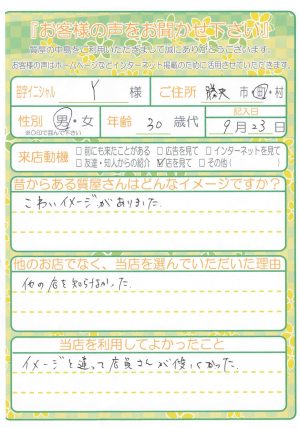 『お客様の声をお聞かせ下さい』
質屋の中島をご利用いただきまして誠にありがとうございます。
お客様の声はホームページなどインターネット掲載のために活用させていただきます。
苗字イニシャル Y 様 ご住所 勝央 市・町・村
性別 男・女 年齢 30 歳代 記入日 9月23日
※○印で囲んで下さい
来店動機 □ 前にも来たことがある □ 広告を見て □ インターネットを見て
□ 友達・知人からの紹介 ☑ 店を見て □ その他( )
昔からある質屋さんはどんなイメージですか?
こわいイメージがありました。
他のお店でなく、当店を選んでいただいた理由
他の店を知らなかった。
当店を利用してよかったこと
イメージと違って店員さんが優しくかった。